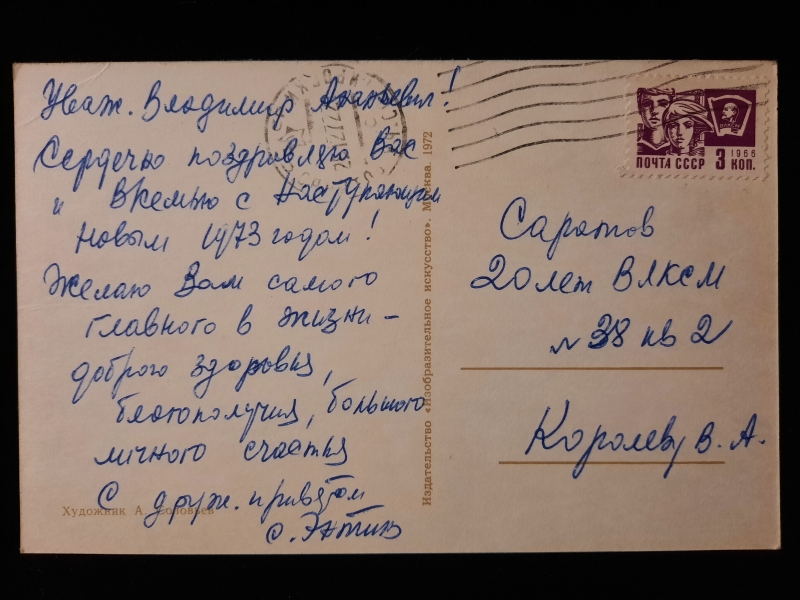 Уваж. Владимир Ананьевич!
Сердечно поздравляю Вас
и семью с Наступающим
Новым 1973 годом!
Желаю Вам самого
главного в жизни –
доброго здоровья,
благополучия, большого
личного счастья
С друж. приветом
Художник А. Соловьев
Издательство «Изобразительное искусство». Москва. 1972
ВЛКСМ
1966
ПОЧТА СССР 3 КОП.
Саратов
20 лет ВЛКСМ
№ 38 кв 2
Королеву В. А.